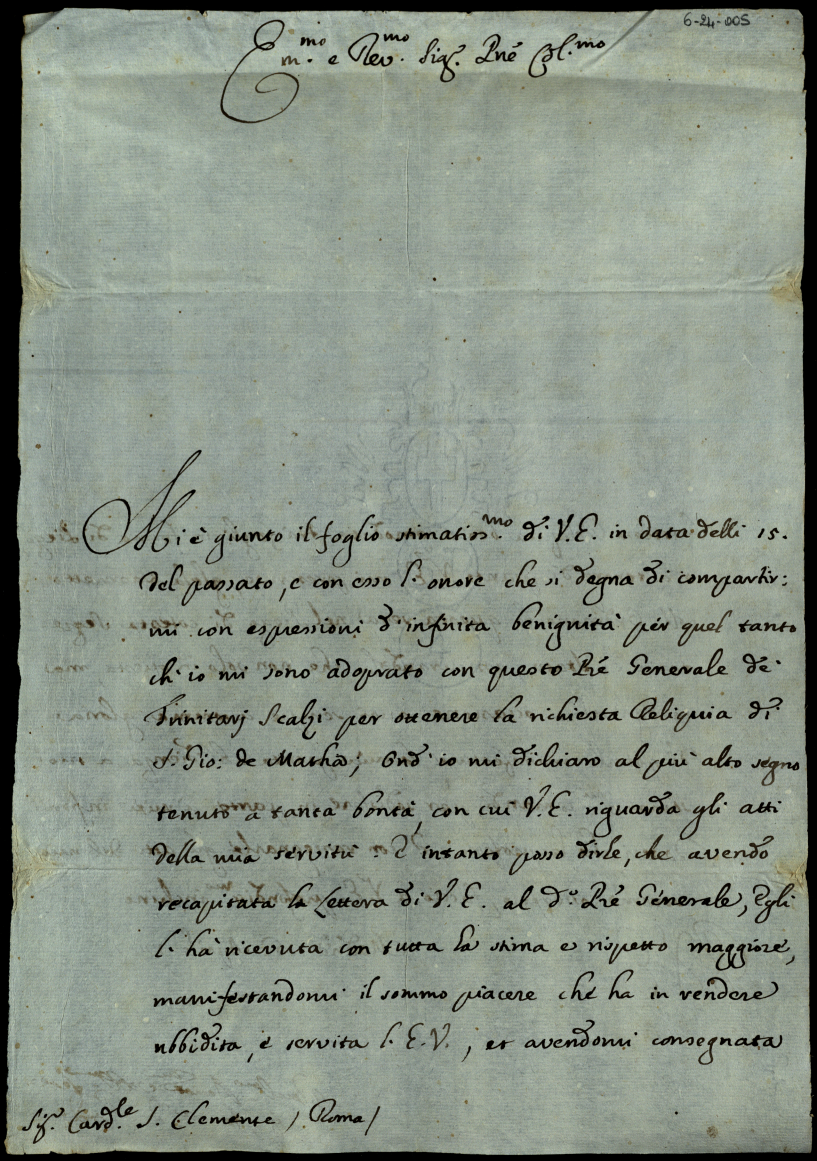 6-24-005
Em.mo e Rev.mo Sig.r Prñe Col.mo
Mi è giunto il foglio stimatiss.mo di V. E. in data delli 15.
del passato, e con esso l' onore che si degna di compartir:
mi con espressioni d' infinita benignità per quel tanto
ch' io mi sono adoprato con questo Prē Generale de'
Trinitarj Scalzi per ottenere la richiesta Reliquia di
S. Gio: de Matha; Ond' io mi dichiaro al più alto segno
tenuto à tanta bontà, con cui V. E. riguarda gli atti
della mia servitù: E intanto posso dirle, che avendo
recapitata la Lettera di V. E. al d.o Prē Generale, Egli
l' hà ricevuta con tutta la stima e rispetto maggiore,
manifestandomi il sommo piacere che ha in rendere
ubbidita, e servita l' E. V., et avendomi consegnata
Sig.r Card.le S. Clemente / Roma /